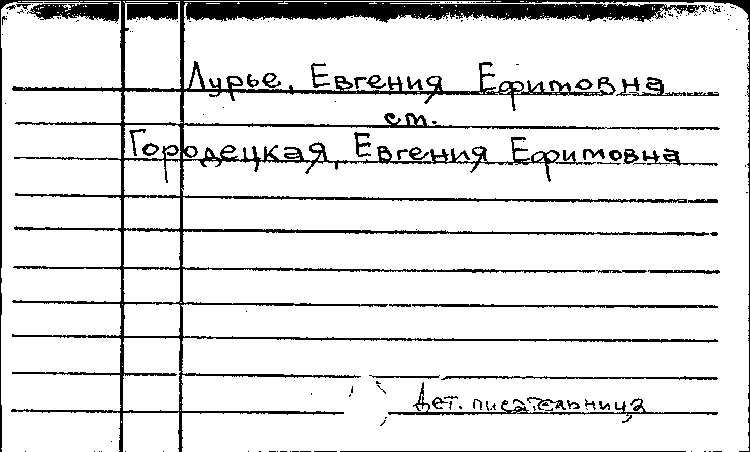 Лурье, Евгения Ефимовна
см.
Городецкая, Евгения Ефимовна
Дет. писательница